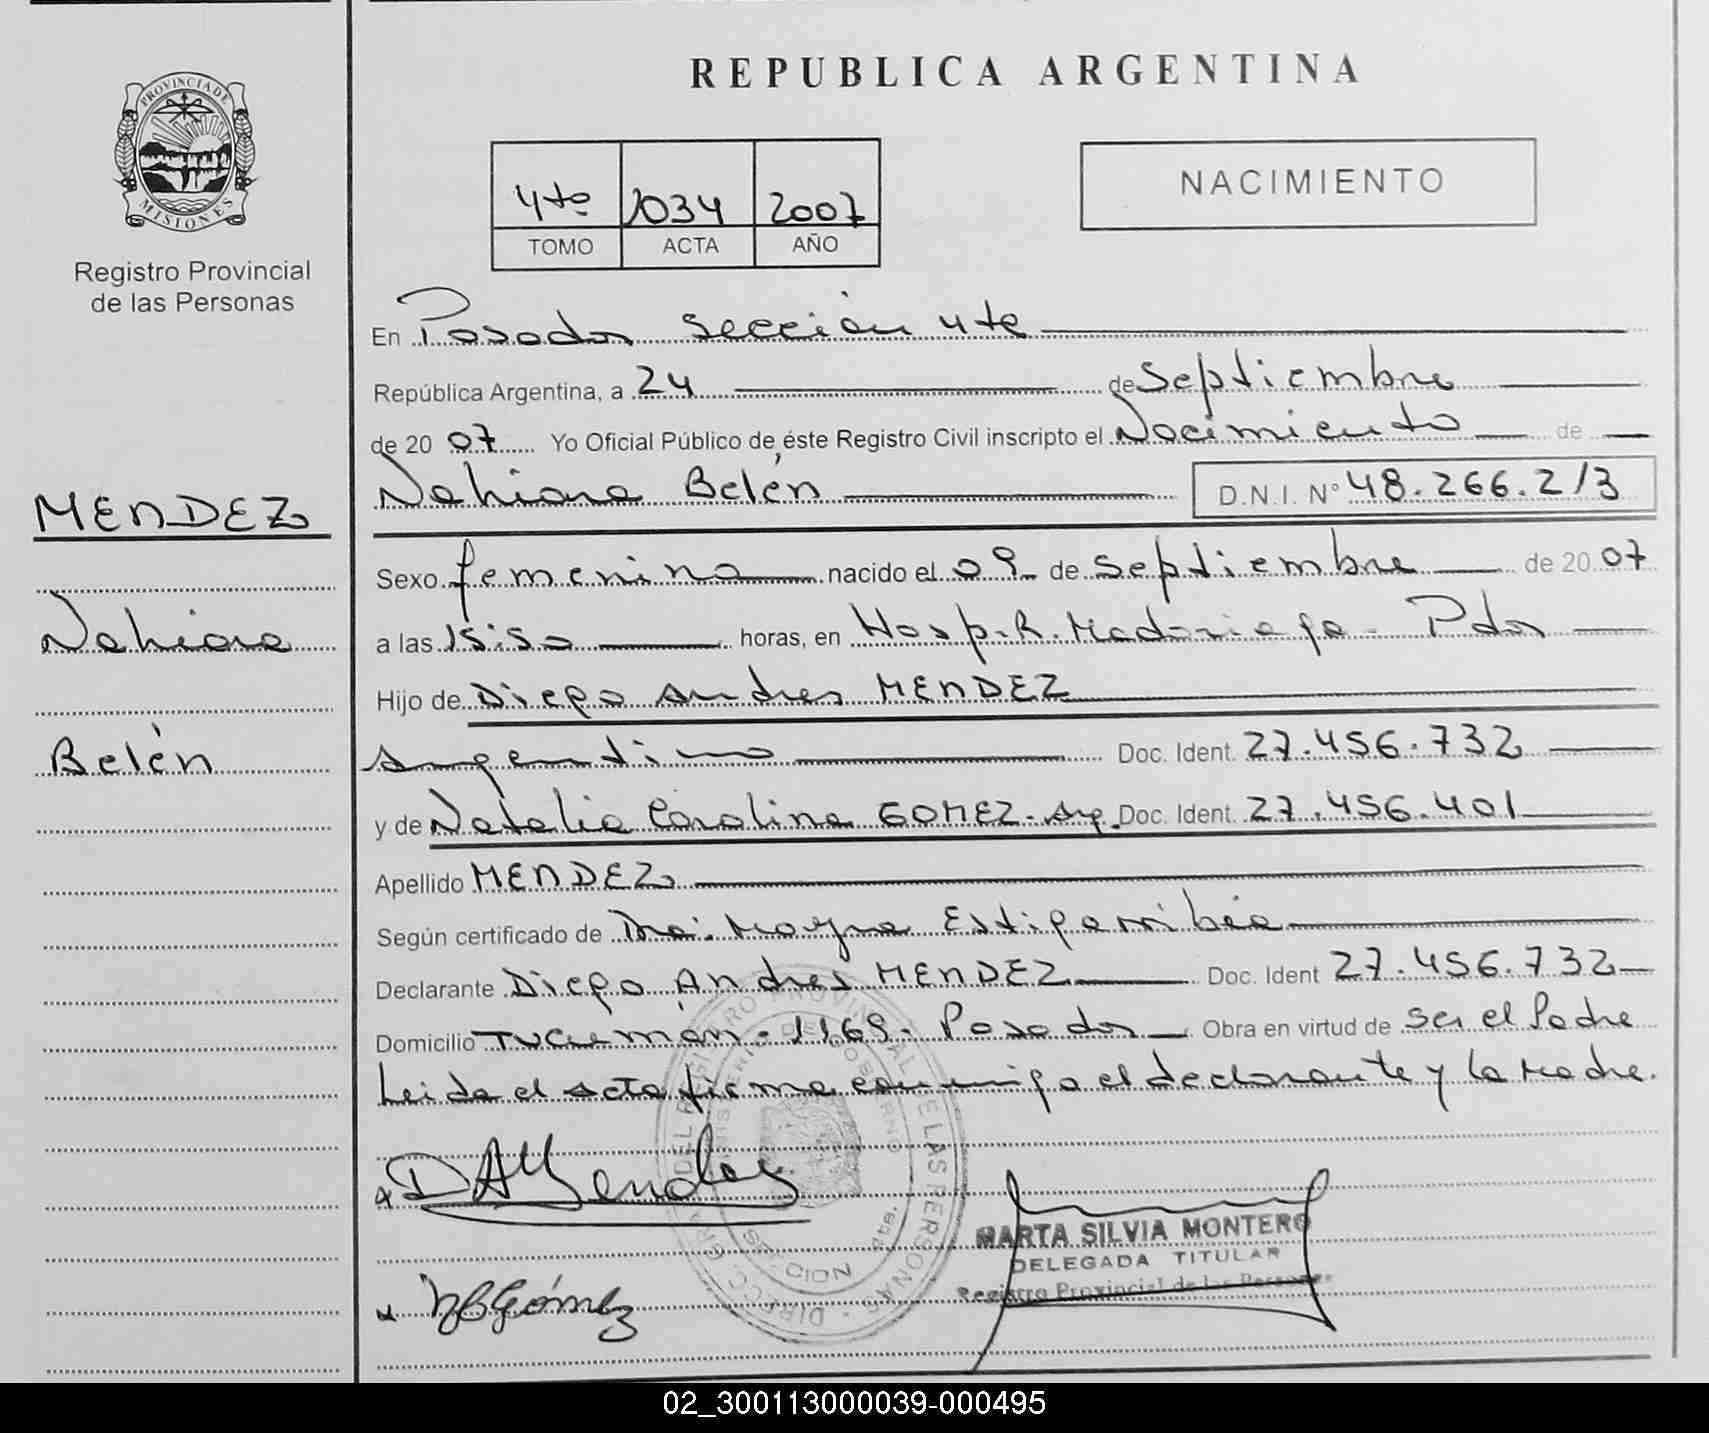 PROVINCIA DE
MISIONES
Registro Provincial
de las Personas
MENDEZ
Nahiara
Belén
REPUBLICA ARGENTINA
4ta 1034 2007
TOMO ACTA AÑO
NACIMIENTO
En Posadas Sección 4ta
República Argentina, a 24 de Septiembre
de 2007 Yo Oficial Público de éste Registro Civil inscripto el Nacimiento de
Nahiara Belén D.N.I. Nº 48.266.213
Sexo femenino nacido el 09 de Septiembre de 2007
a las 15:50 horas, en Hosp. R. Madariaga - Pdas
Hijo de Diego Andres MENDEZ
Argentino Doc. Ident. 27.456.732
y de Natalia Carolina GOMEZ - Arg. Doc. Ident. 27.456.401
Apellido MENDEZ
Según certificado de Dra. Mayra Estigarribia
Declarante Diego Andres MENDEZ Doc. Ident 27.456.732
Domicilio Tucumán - 1169 - Posadas Obra en virtud de Ser el Padre
Leida el acta firma conmigo el declarante y la Madre.
DAMendez
MARTA SILVIA MONTERO
DELEGADA TITULAR
Registro Provincial de las Personas
NCGómez
DIRECC. GRAL. DEL REGISTRO PROVINCIAL DE LAS PERSONAS
MINISTERIO DE GOBIERNO
SECCION 4ta.
02_300113000039-000495